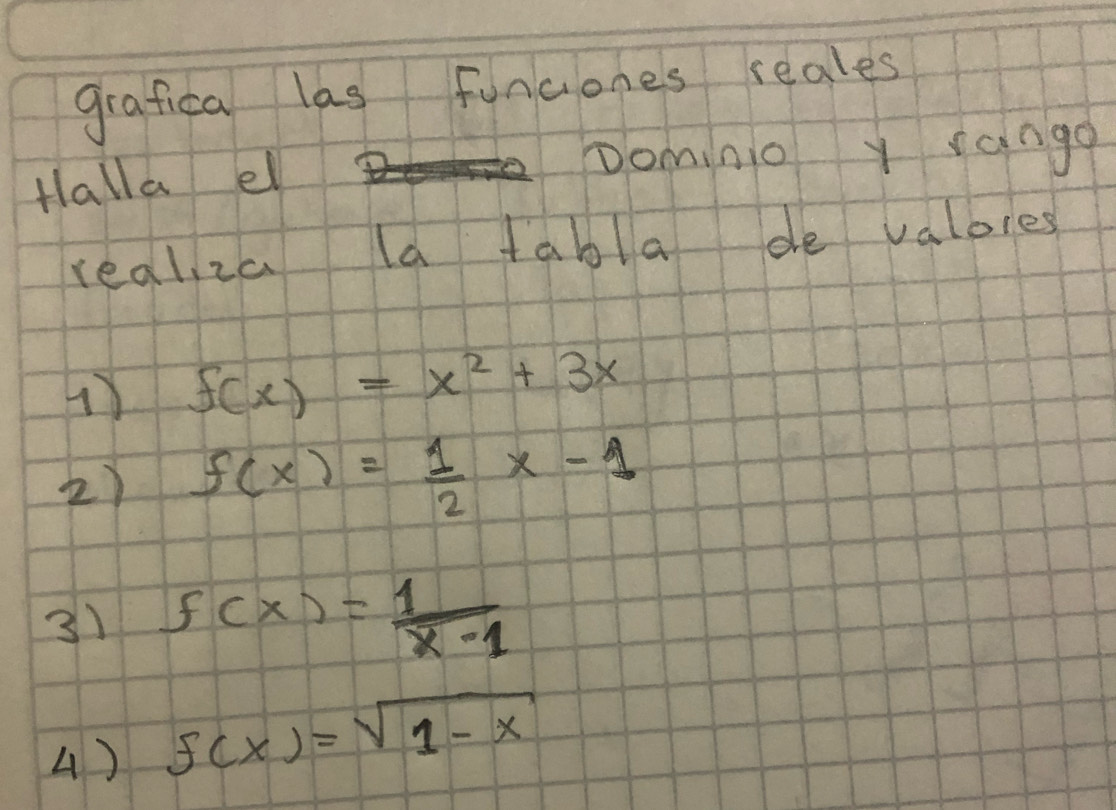 grafica las funciones reales
Halla el Dominio y rango
realiza la tabla de valores
1) f(x) = x² + 3x
2) f(x) = 1/2 x - 1
3) f(x) = 1/(x-1)
4) f(x) = √(1-x)